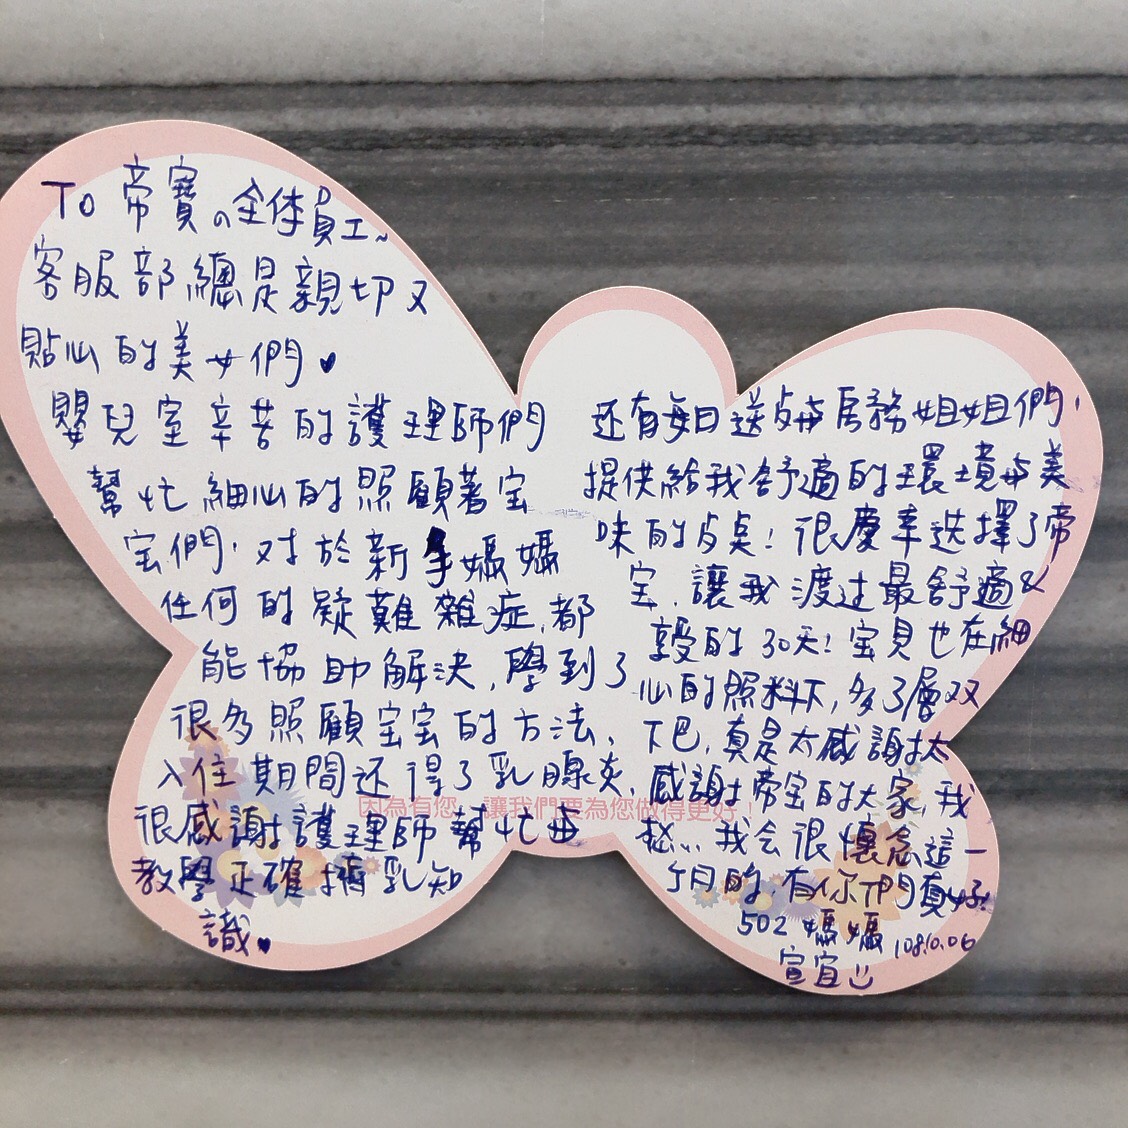 To 帝寶の全体員工~
客服部總是親切又
貼心的美女們♥
嬰兒室辛苦的護理師們
幫忙細心的照顧著宝
宝們，对於新手媽媽
任何的疑難雜症，都
能協助解決，學到了
很多照顧宝宝的方法，
入住期間还得了乳腺炎，
很感謝護理師幫忙与
教學正確擠乳知
識♥
还有每日送歺与房務姐姐們，
提供給我舒適的環境与美
味的歺桌！很慶幸选擇了帝
宝，讓我渡过最舒適&
享受的30天！宝貝也在細
心的照料下，多了層双
下巴，真是太感謝太
感謝帝宝的大家，我
愁...我会很懷念這一
个月的，有你們真好！
502 媽媽 108.10.06
宣宜
因為有您，讓我們要為您做得更好！